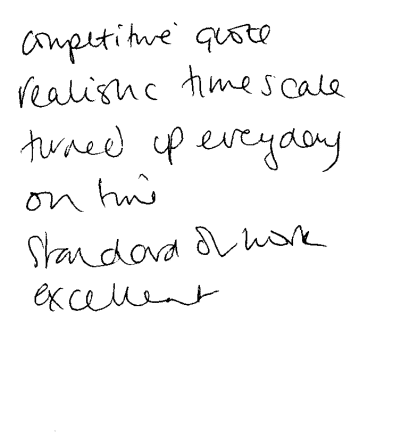 competitive quote
realistic timescale
turned up everyday
on time
standard of work
excellent